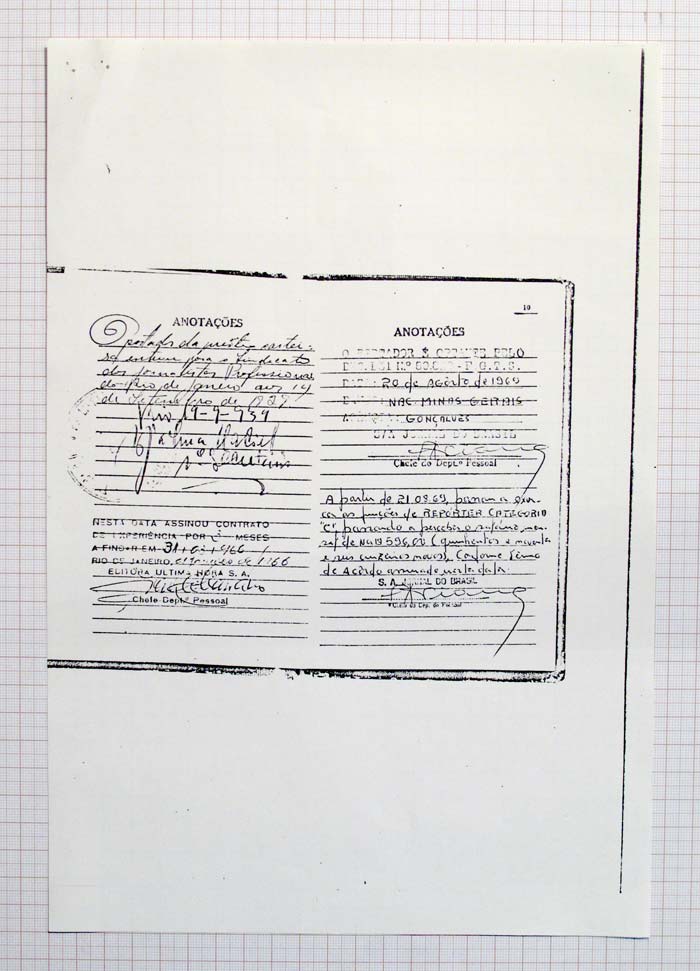 ANOTAÇÕES
O portador da presente cartei-
ra entrou para o Sindicato
dos Jornalistas Profissionais
do Rio de Janeiro aos 19
de Setembro de
Rio 19-9-959
NESTA DATA ASSINOU CONTRATO
DE EXPERIÊNCIA POR MESES
A FINDAR EM 31
RIO DE JANEIRO, de 1966
EDITÔRA ULTIMA HORA S. A.
Chefe Deptº Pessoal
10
ANOTAÇÕES
O É OPTANTE PELO
F.G.T.S.
20 de Agôsto de 1969
NAC. MINAS GERAIS
GONÇALVES
S/A JORNAL DO BRASIL
Chefe do Deptº Pessoal
A partir de 21.08.69, passou a exer-
cer as funções de REPÓRTER CATEGORIA
"C", passando a perceber o salário men-
sal de NCR$ 596,00 (quinhentos e noventa
e seis cruzeiros novos), conforme Têrmo
de Acôrdo assinado nesta data.
S. A. JORNAL DO BRASIL
Chefe do Dep. de Pessoal